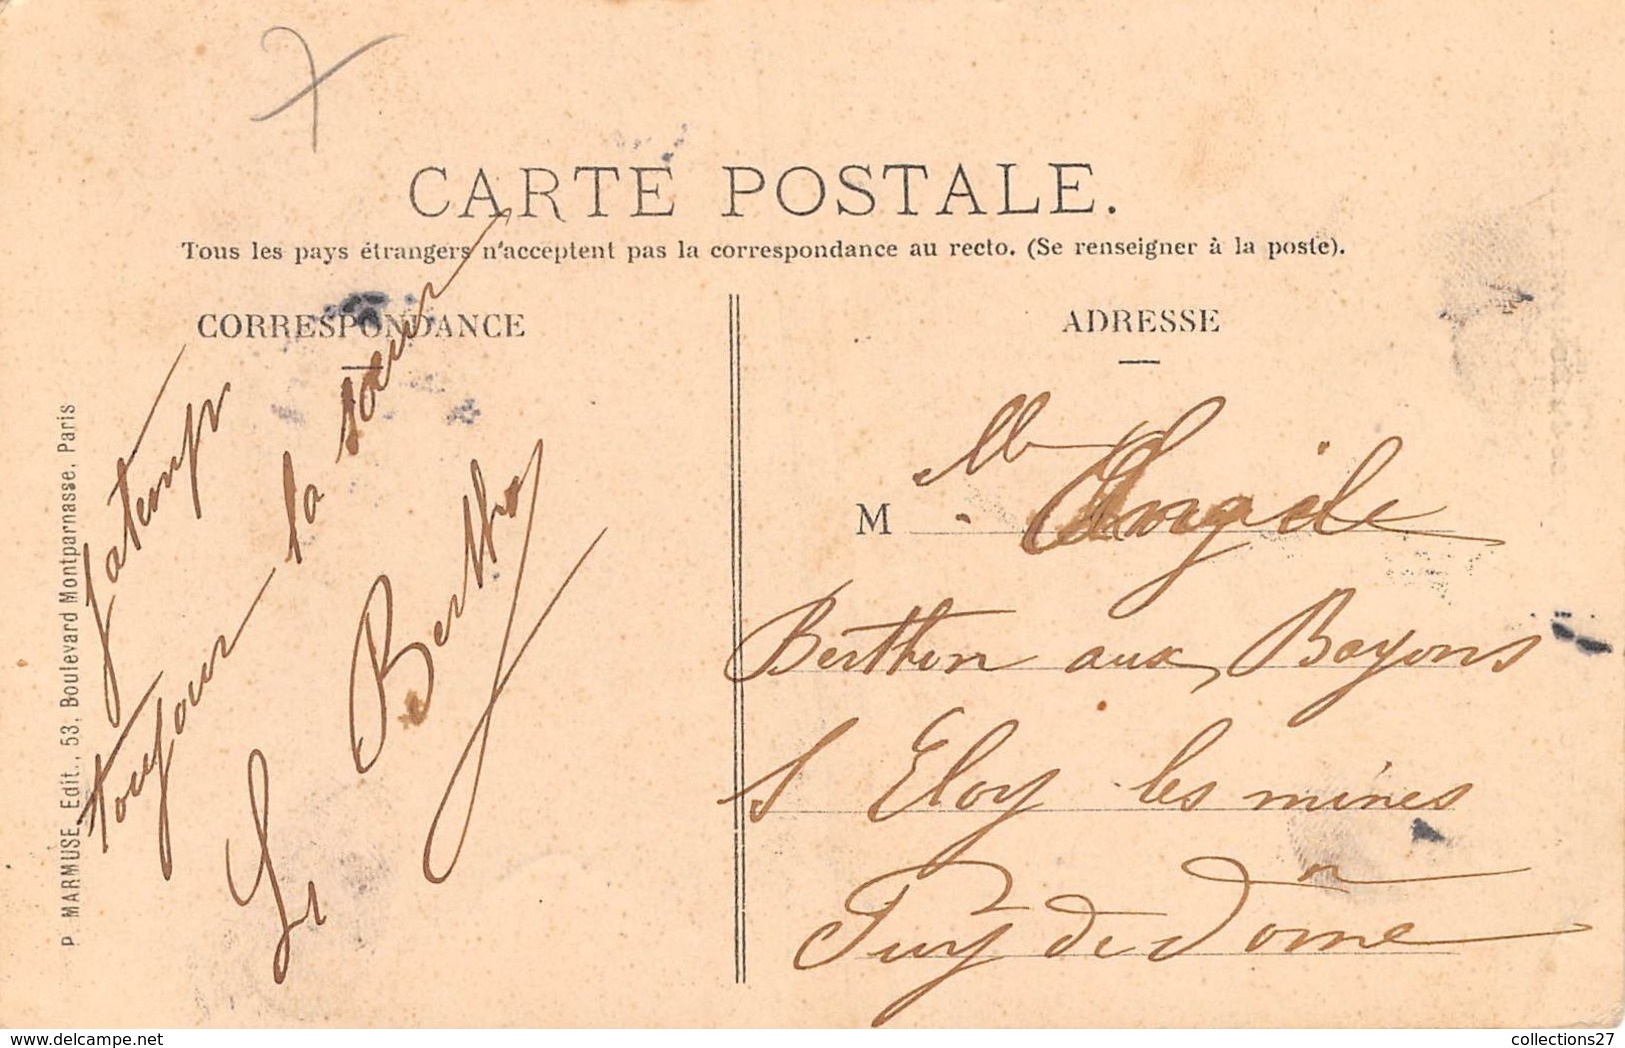 CARTE POSTALE.
Tous les pays étrangers n'acceptent pas la correspondance au recto. (Se renseigner à la poste).
CORRESPONDANCE
toujour la sœur
L. Berthon
P. MARMUSE, Edit., 53, Boulevard Montparnasse, Paris
ADRESSE
M lle Angèle
Berthon aux Bayons
S Eloy les mines
Puy de Dôme
collections27
www.delcampe.net